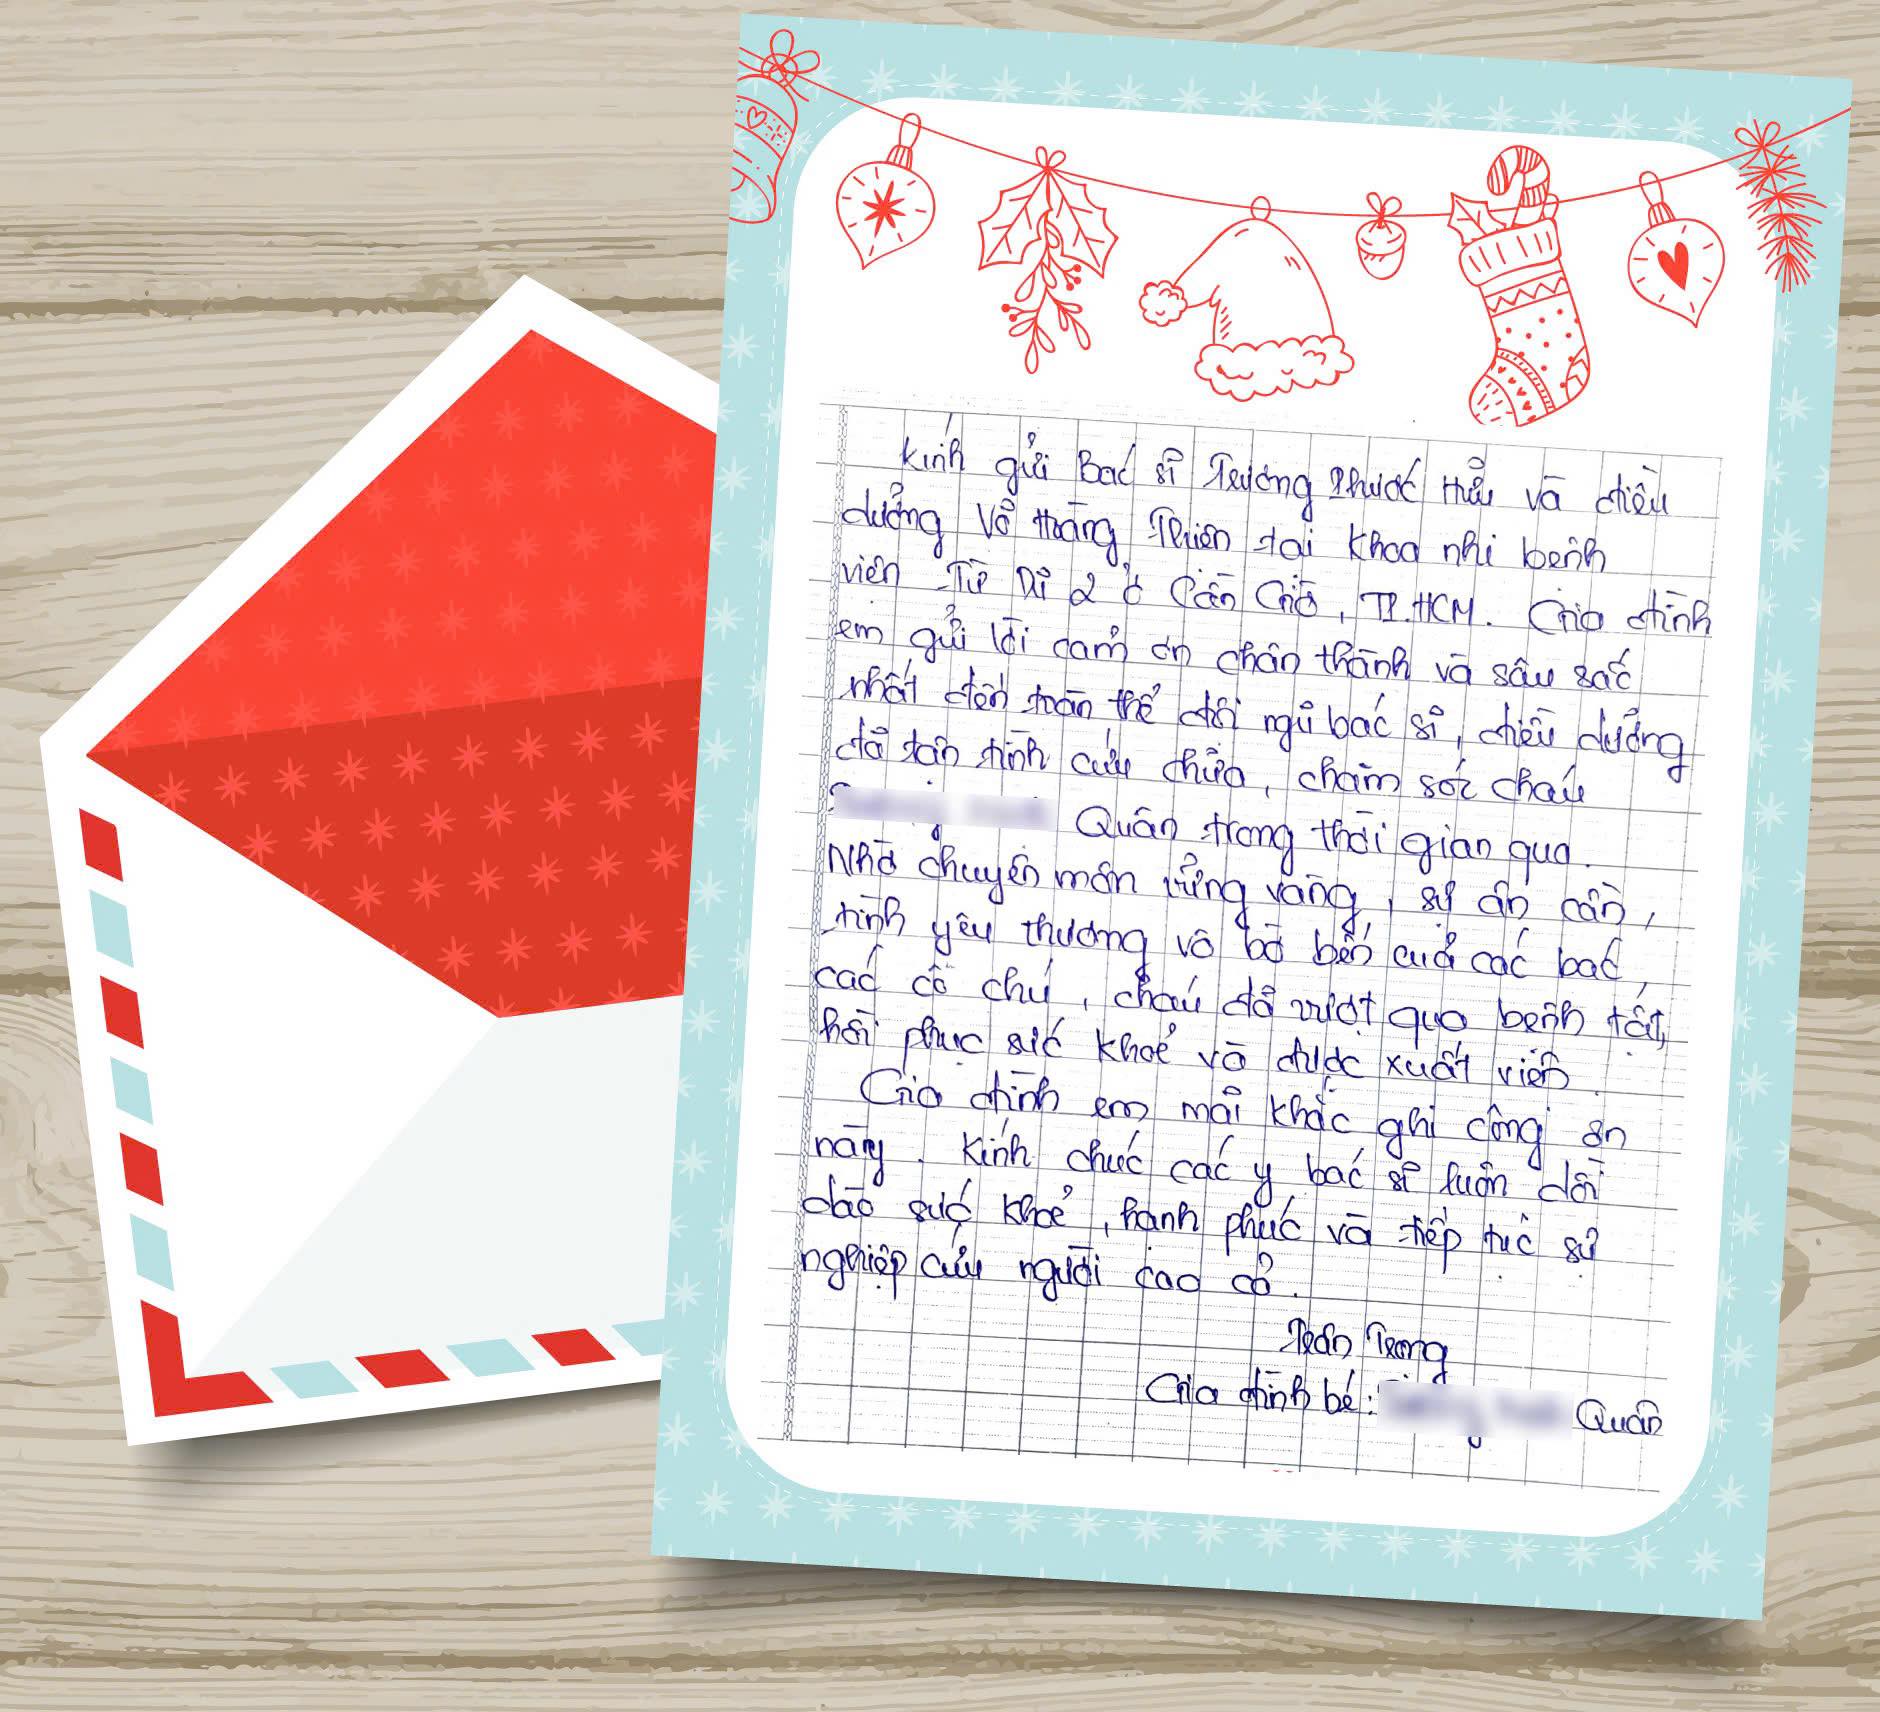 Kính gửi Bác sĩ Trương Phước Hữu và điều
dưỡng Võ Hoàng Thiên tại khoa nhi bệnh
viện Từ Dũ 2 ở Cần Giờ, TP.HCM. Gia đình
em gửi lời cảm ơn chân thành và sâu sắc
nhất đến toàn thể đội ngũ bác sĩ, điều dưỡng
đã tận tình cứu chữa, chăm sóc cháu
Quân trong thời gian qua.
Nhờ chuyên môn vững vàng, sự ân cần,
tình yêu thương vô bờ bến của các bác,
các cô chú, cháu đã vượt qua bệnh tật,
hồi phục sức khoẻ và được xuất viện.
Gia đình em mãi khắc ghi công ơn
này. Kính chúc các y bác sĩ luôn dồi
dào sức khoẻ, hạnh phúc và tiếp tục sự
nghiệp cứu người cao cả.
Trân Trọng
Gia đình bé: Quân